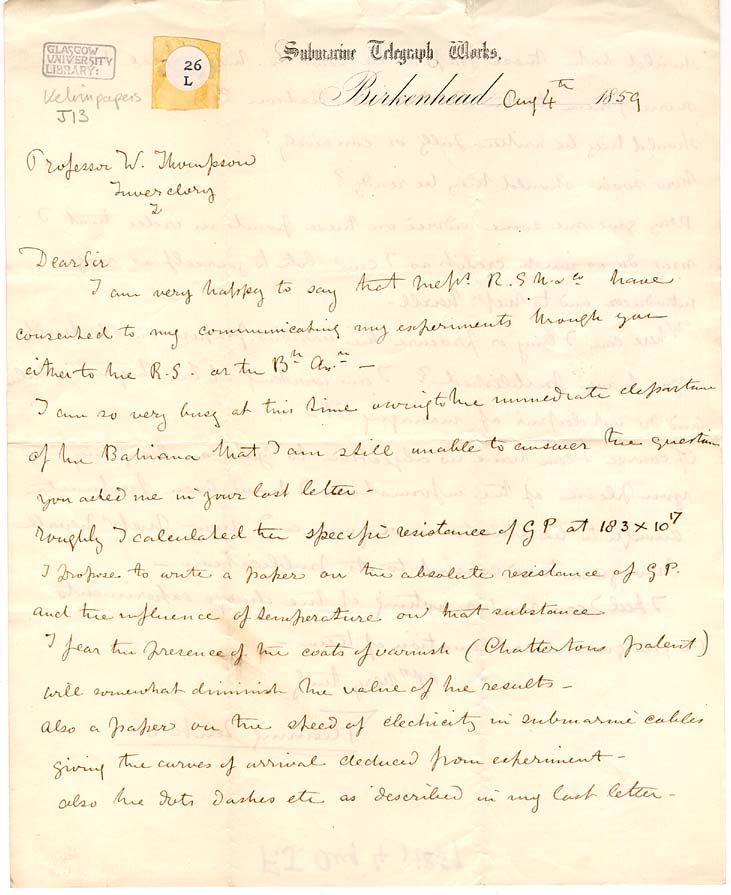 GLASGOW
UNIVERSITY
LIBRARY:
Kelvin papers
J13
26
L
Submarine Telegraph Works,
Birkenhead Aug 4th 1859
Professor W. Thompson
Inverclory
Dear Sir
I am very happy to say that Messrs. R.S.N. & Co have
consented to my communicating my experiments through you
either to the R.S. or the Bth Asn. —
I am so very busy at this time owing to the immediate departure
of the Bahiana that I am still unable to answer the question
you asked me in your last letter —
Roughly I calculated the specific resistance of GP at 183 × 10^17
I propose to write a paper on the absolute resistance of G.P.
and the influence of temperature on that substance
I fear the presence of the coats of varnish (Chattertons patent)
will somewhat diminish the value of the results —
Also a paper on the speed of electricity in submarine cables
giving the curves of arrival deduced from experiment —
also the dots dashes etc as described in my last letter —